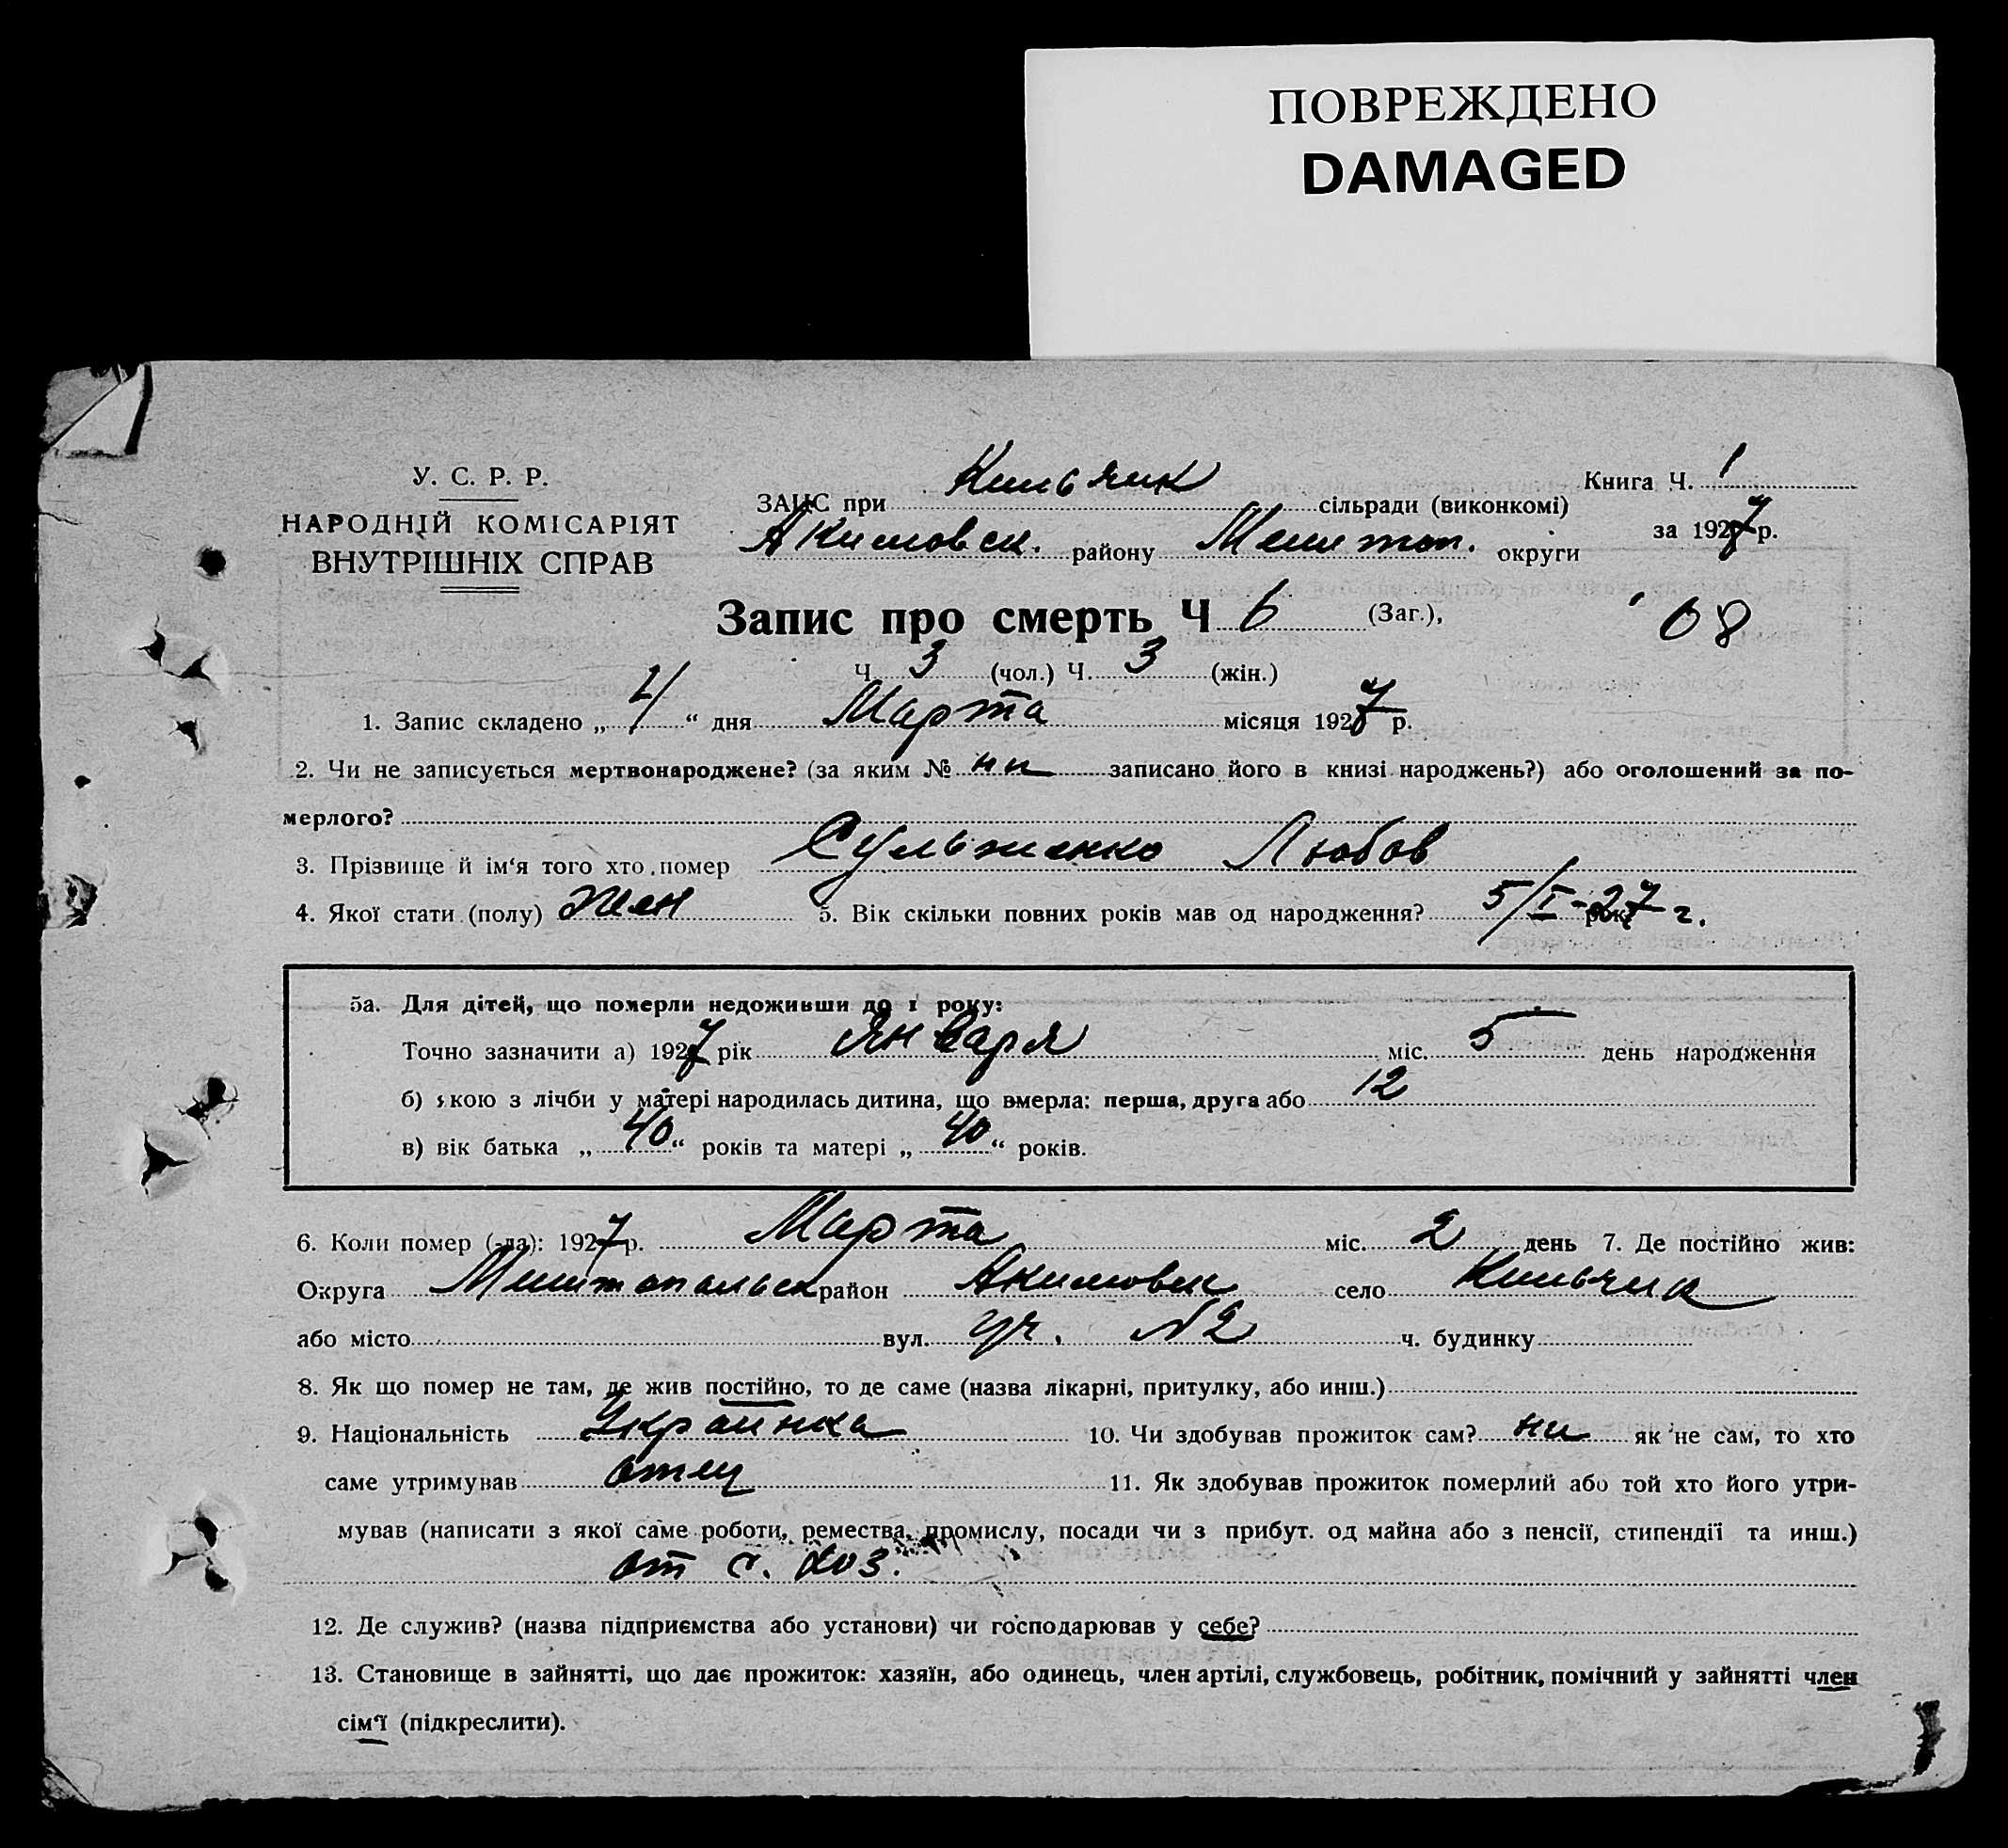 ПОВРЕЖДЕНО
DAMAGED
У. С. Р. Р.
НАРОДНІЙ КОМІСАРІЯТ
ВНУТРІШНІХ СПРАВ
ЗАГС при Кильчик сільради (виконкомі)
Акимовск. району Мелитоп. округи
Книга Ч. 1
за 1927 р.
Запис про смерть Ч 6 (Заг.),
68
Ч. 3 (чол.) Ч. 3 (жін.)
1. Запис складено „4“ дня Марта місяця 1927 р.
2. Чи не записується мертвонароджене? (за яким № ни записано його в книзі народжень?) або оголошений за по-
мерлого?
3. Прізвище й ім‘я того хто помер Сульженко Любов
4. Якої стати (полу) Жен 5. Вік скільки повних років мав од народження? 5/I-27 г.
5а. Для дітей, що померли недоживши до 1 року:
Точно зазначити а) 1927 рік Января міс. 5 день народження
б) якою з лічби у матері народилась дитина, що вмерла: перша, друга або 12
в) вік батька „40“ років та матері „40“ років.
6. Коли помер (-ла): 1927 р. Марта міс. 2 день 7. Де постійно жив:
Округа Мелитопольск район Акимовск село Кильчик
або місто вул. уч. №2 ч. будинку
8. Як що помер не там, де жив постійно, то де саме (назва лікарні, притулку, або инш.)
9. Національність Украинка 10. Чи здобував прожиток сам? ни як не сам, то хто
саме утримував отец 11. Як здобував прожиток померлий або той хто його утри-
мував (написати з якої саме роботи, ремества, промислу, посади чи з прибут. од майна або з пенсії, стипендії та инш.)
от с. хоз.
12. Де служив? (назва підприємства або установи) чи господарював у себе?
13. Становище в зайнятті, що дає прожиток: хазяїн, або одинець, член артілі, службовець, робітник, помічний у зайнятті член
сім‘ї (підкреслити).